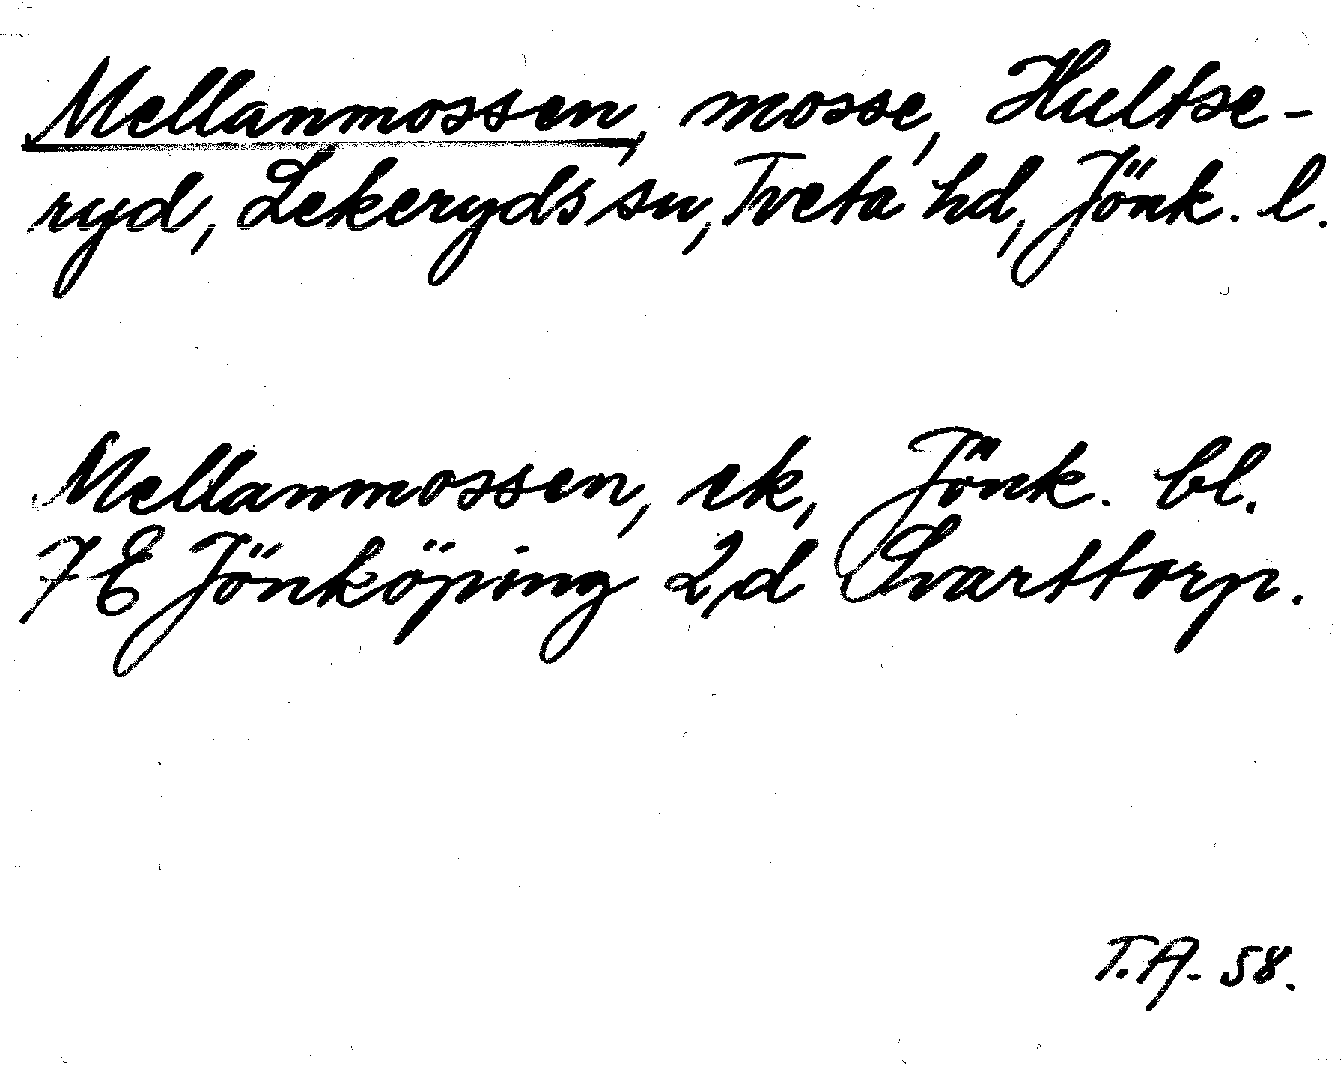 Mellanmossen, mosse, Hultse-
ryd, Lekeryds sn, Tveta hd, Jönk. l.
Mellanmossen, ek, Jönk. bl.
7 E Jönköping 2,d Svarttorp.
T.A. 58.